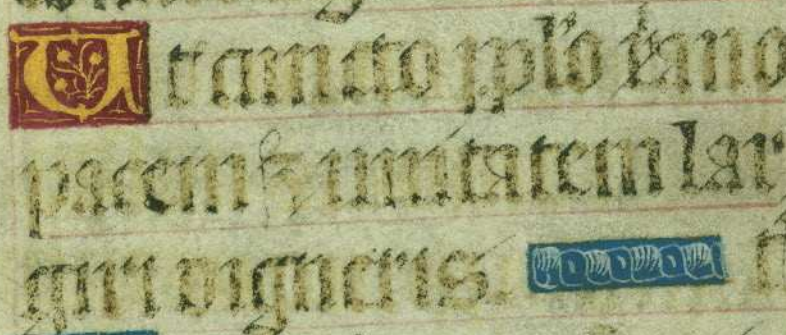 Ut cuncto pplo xpiano
pacem & unitatem lar
giri digneris. t